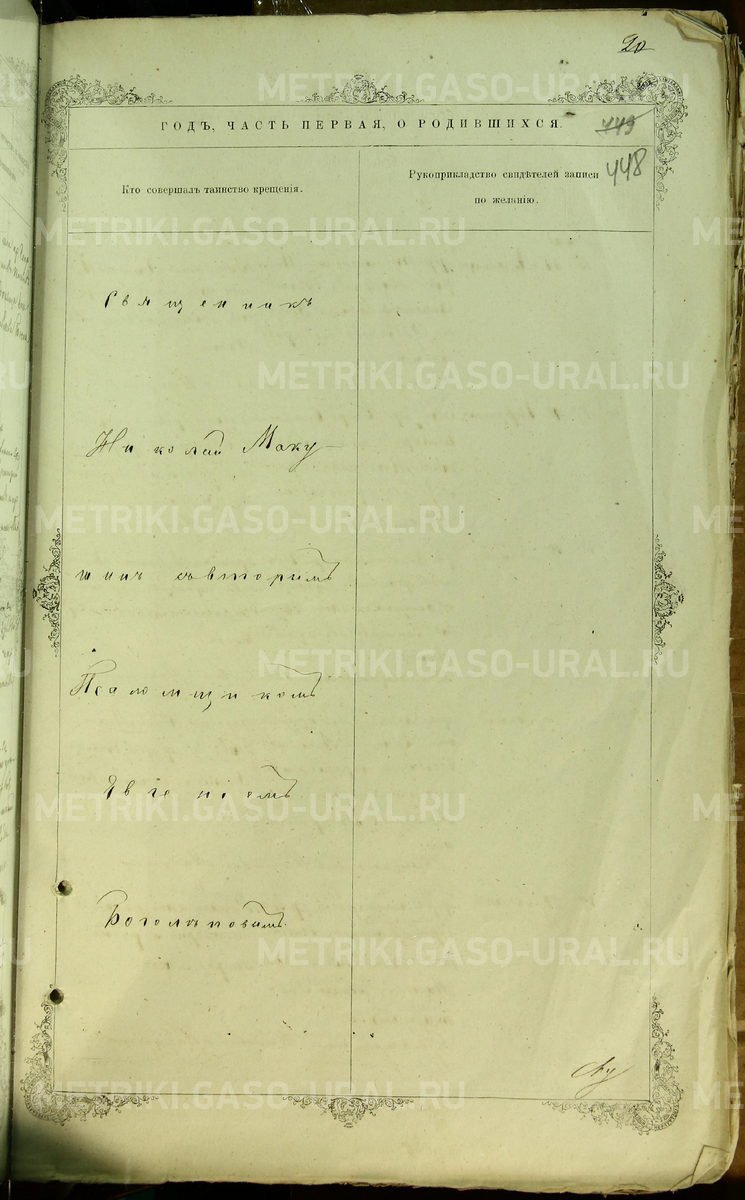 20
ГОДЪ, ЧАСТЬ ПЕРВАЯ, О РОДИВШИХСЯ.
449
448
Кто совершалъ таинство крещенія.
Рукоприкладство свидѣтелей записи
по желанію.
Священникъ
Николай Маку-
шинъ съ вторымъ
Псаломщикомъ
Евгеніемъ
METRIKI.GASO-URAL.RU